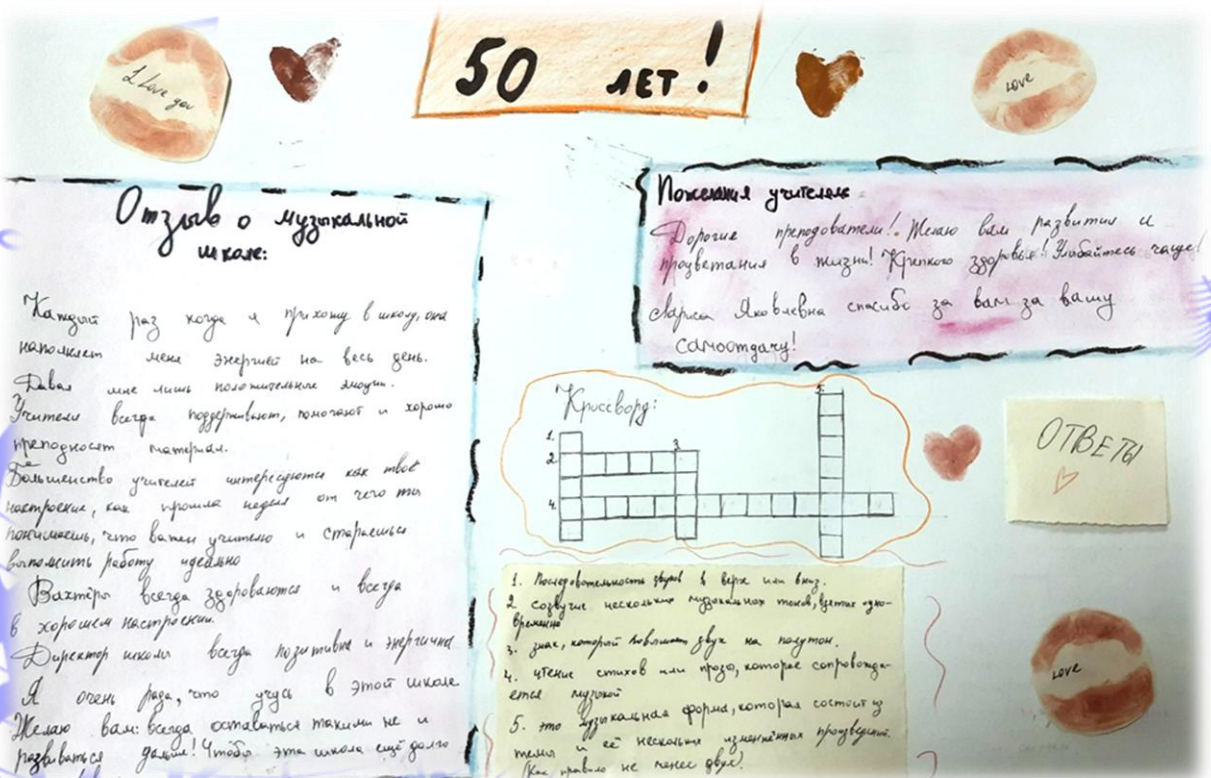 I love you
50 лет!
Love
Отзыв о музыкальной
школе:
Каждый раз когда я прихожу в школу, она
наполняет меня энергией на весь день.
Давая мне лишь положительные эмоции.
Учителя всегда поддерживают, помогают и хорошо
преподносят материал.
Большенство учителей интересуются как твоё
настроение, как прошла неделя от чего ты
понимаешь, что важен учителю и стараешься
выполнить работу идеально
Вахтёры всегда здороваются и всегда
в хорошем настроении.
Директор школы всегда позитивна и энергична
Я очень рада, что учусь в этой школе
Желаю вам: всегда оставаться такими же и
развиваться дальше! Чтобы эта школа ещё долго
Пожелания учителям
Дорогие преподователи! Желаю вам развития и
процветания в жизни! Крепкого здоровья! Улыбайтесь чаще!
Лариса Яковлевна спасибо за вам за вашу
самоотдачу!
Кроссворд:
1.
2.
3.
4.
5.
ОТВЕТЫ
1. Последовательность звуков в верх или вниз.
2. созвучие нескольких музыкальных тонов, взятых одно-
временно
3. знак, который повышает звук на полутон.
4. чтение стихов или прозы, которое сопровожда-
ется музыкой
5. это музыкальная форма, которая состоит из
темы и её нескольких изменённых произведений.
(Как правило не менее двух).
Love